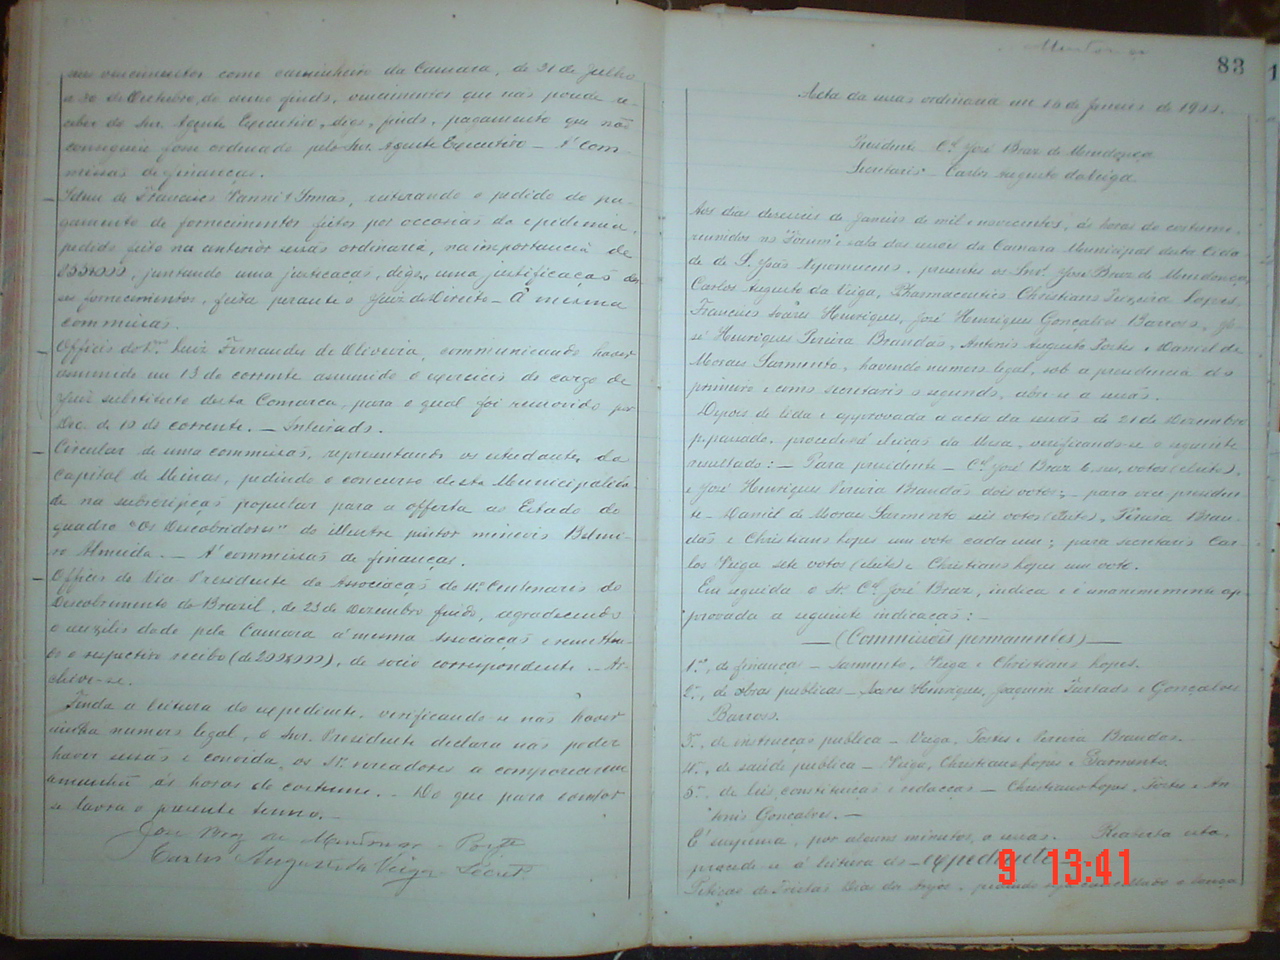 seus vencimentos como carcereiro da Camara, de 21 de Julho
a 30 de Outubro, do anno findo, vencimentos que não poude re-
ceber do Snr. Agente Executivo, digo, findo, pagamento que não
conseguiu fosse ordenado pelo Snr. Agente Executivo — Á com-
missão de finanças.
Idem de Francisco Vanni & Irmão, reiterando o pedido do pa-
gamento de fornecimentos feitos por occasião da epidemia,
pedido feito na anterior sessão ordinaria, na importancia de
juntando uma justicação, digo, uma justificação dos
seus fornecimentos, feita perante o Juiz de Direito — Á mesma
commissão.
Officio do Dr. Luiz Fernandes de Oliveira, communicando haver
assumido em 13 do corrente assumido o exercicio do cargo de
Juiz substituto desta Comarca, para o qual foi removido por
Dec. de 10 do corrente. — Inteirado.
Circular de uma commissão, representando os estudantes da
Capital de Minas, pedindo o concurso desta Municipalida-
de na subscripção popular para a offerta ao Estado do
quadro "Os Descobridores" do illustre pintor mineiro Belmi-
ro Almeida. — Á commissão de finanças.
Officio do Vice Presidente da Associação do 4º Centenario do
Descobrimento do Brazil, de 23 de Dezembro findo, agradecendo
o auxilio dado pela Camara á mesma Associação e remetten-
do o respectivo recibo (de 200$000), de socio correspondente. — Ar-
chive-se.
Finda a leitura do expediente, verificando-se não haver
ainda numero legal, o Snr. Presidente declara não poder
haver sessão e convida os Srs. vereadores a comparecerem
amanhã ás horas do costume. — Do que para constar
se lavra o presente termo. —
José Braz de Mendonça - Pres.te
Carlos Augusto da Veiga - Secret.
83
Acta da sessão ordinaria em 16 de Janeiro de 1900.
Presidente Cel. José Braz de Mendonça
Secretario - Carlos Augusto da Veiga
Aos dias dezeseis de Janeiro de mil e novecentos, ás horas do costume,
reunidos no "Forum", sala das sessões da Camara Municipal desta Cida-
de de S. João Nepomuceno, presentes os Snrs. José Braz de Mendonça,
Carlos Augusto da Veiga, Pharmaceutico Christiano Teixeira Lopes,
Francisco Soares Henriques, José Henriques Gonçalves Barroso, Jo-
sé Henriques Pereira Brandão, Antonio Augusto Fortes e Daniel de
Moraes Sarmento, havendo numero legal, sob a presidencia do
primeiro e como secretario o segundo, abre-se a sessão.
Depois de lida e approvada a acta da sessão de 21 de Dezembro
p. passado, procede-se á eleição da Mesa, verificando-se o seguinte
resultado: — Para presidente — Cel. José Braz 6 seis, votos (eleito),
e José Henriques Pereira Brandão dois votos; — para vice presiden-
te — Daniel de Moraes Sarmento seis votos (eleito), Pereira Bran-
dão e Christiano Lopes um voto cada um; para secretario Car-
los Veiga sete votos (eleito) e Christiano Lopes um voto.
Em seguida o Sr. Cel. José Braz, indica e é unanimemente ap-
provada a seguinte indicação: —
— (Commissões permanentes) —
1ª, de finanças — Sarmento, Veiga e Christiano Lopes.
2ª, de obras publicas — Soares Henriques, Joaquim Furtado e Gonçalves
Barroso.
3ª, de instrucção publica — Veiga, Fortes e Pereira Brandão.
4ª, de saúde publica — Veiga, Christiano Lopes e Sarmento.
5ª, de leis, constituição e redacção — Christiano Lopes, Fortes e An-
tonio Gonçalves. —
É suspensa, por alguns minutos, a sessão. Reaberta esta,
procede-se á leitura do — expediente —
Petição de Dias dos Anjos, pedindo
9 13:41